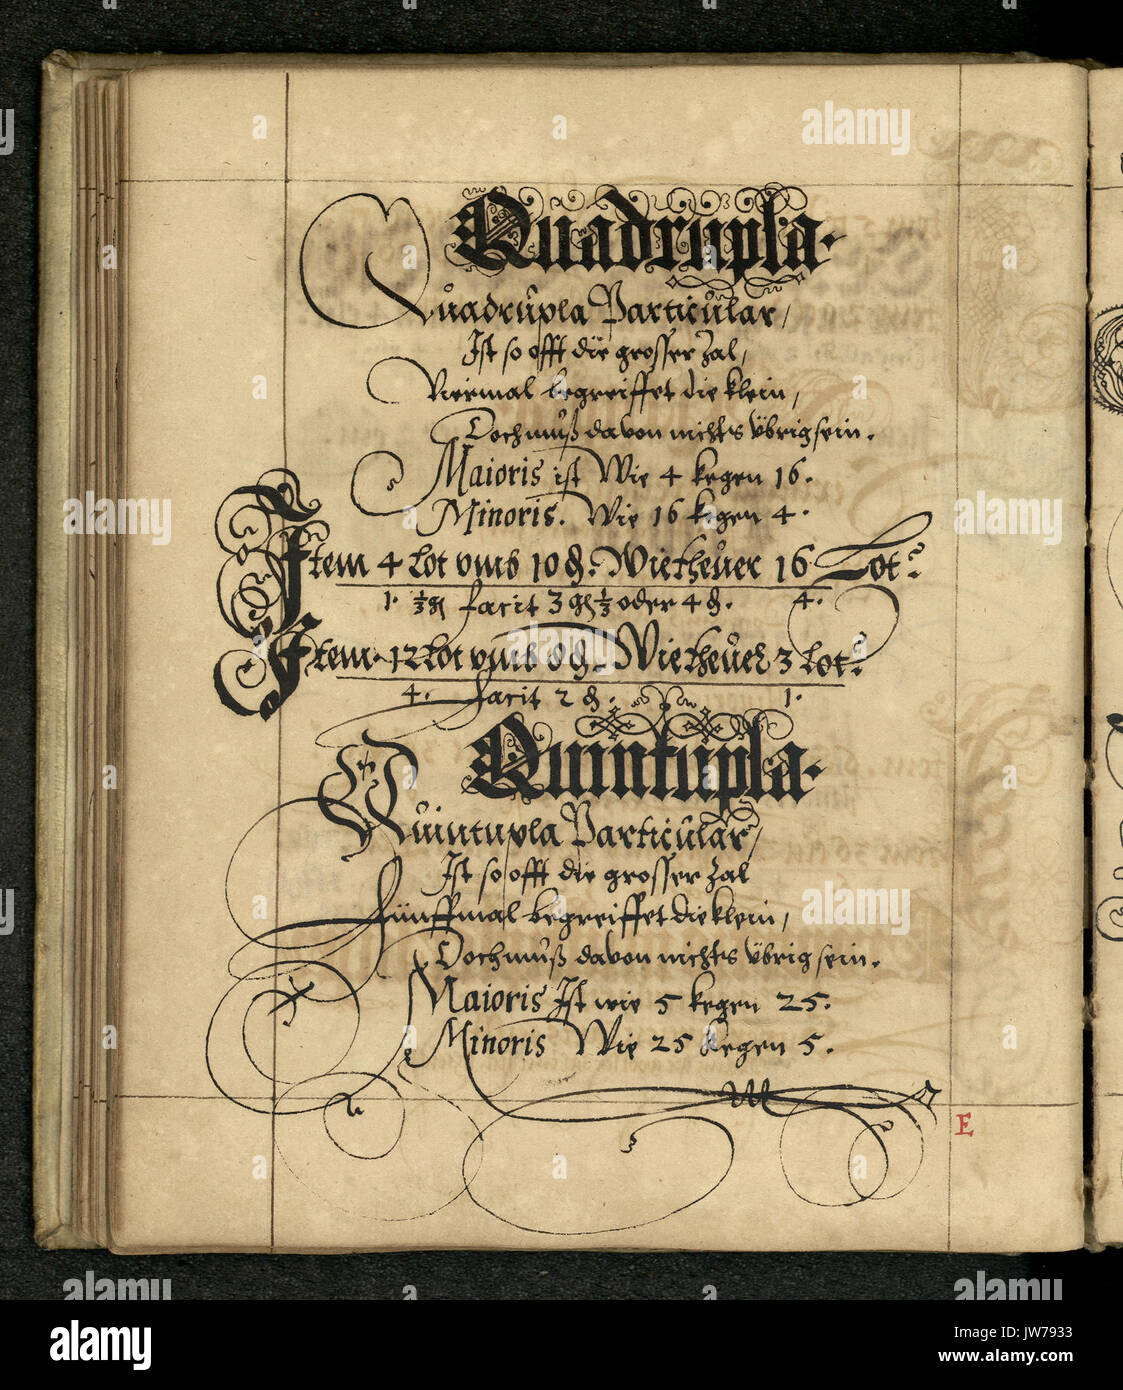 Quadrupla.
Quadrupla Particular,
Ist so offt die grosser Zal,
Viermal begreiffet die klein,
Doch muß davon nichts übrig sein.
Maioris ist Wie 4 kegen 16.
Minoris. Wie 16 kegen 4.
Item 4 Lot vmb 10 . Wie theuer 16 Lot?
1. 1/3 facit 3 1/3 oder 4 . 4.
Item 12 lot vmb 8 . Wie theuer 3 lot?
4. facit 2 . 1.
Quintupla.
Quintupla Particular,
Ist so offt die grosser Zal
fünffmal begreiffet die klein,
Doch muß davon nichts übrig sein.
Maioris Ist wie 5 kegen 25.
Minoris Wie 25 kegen 5.
E
alamy
Image ID: JW7933
www.alamy.com